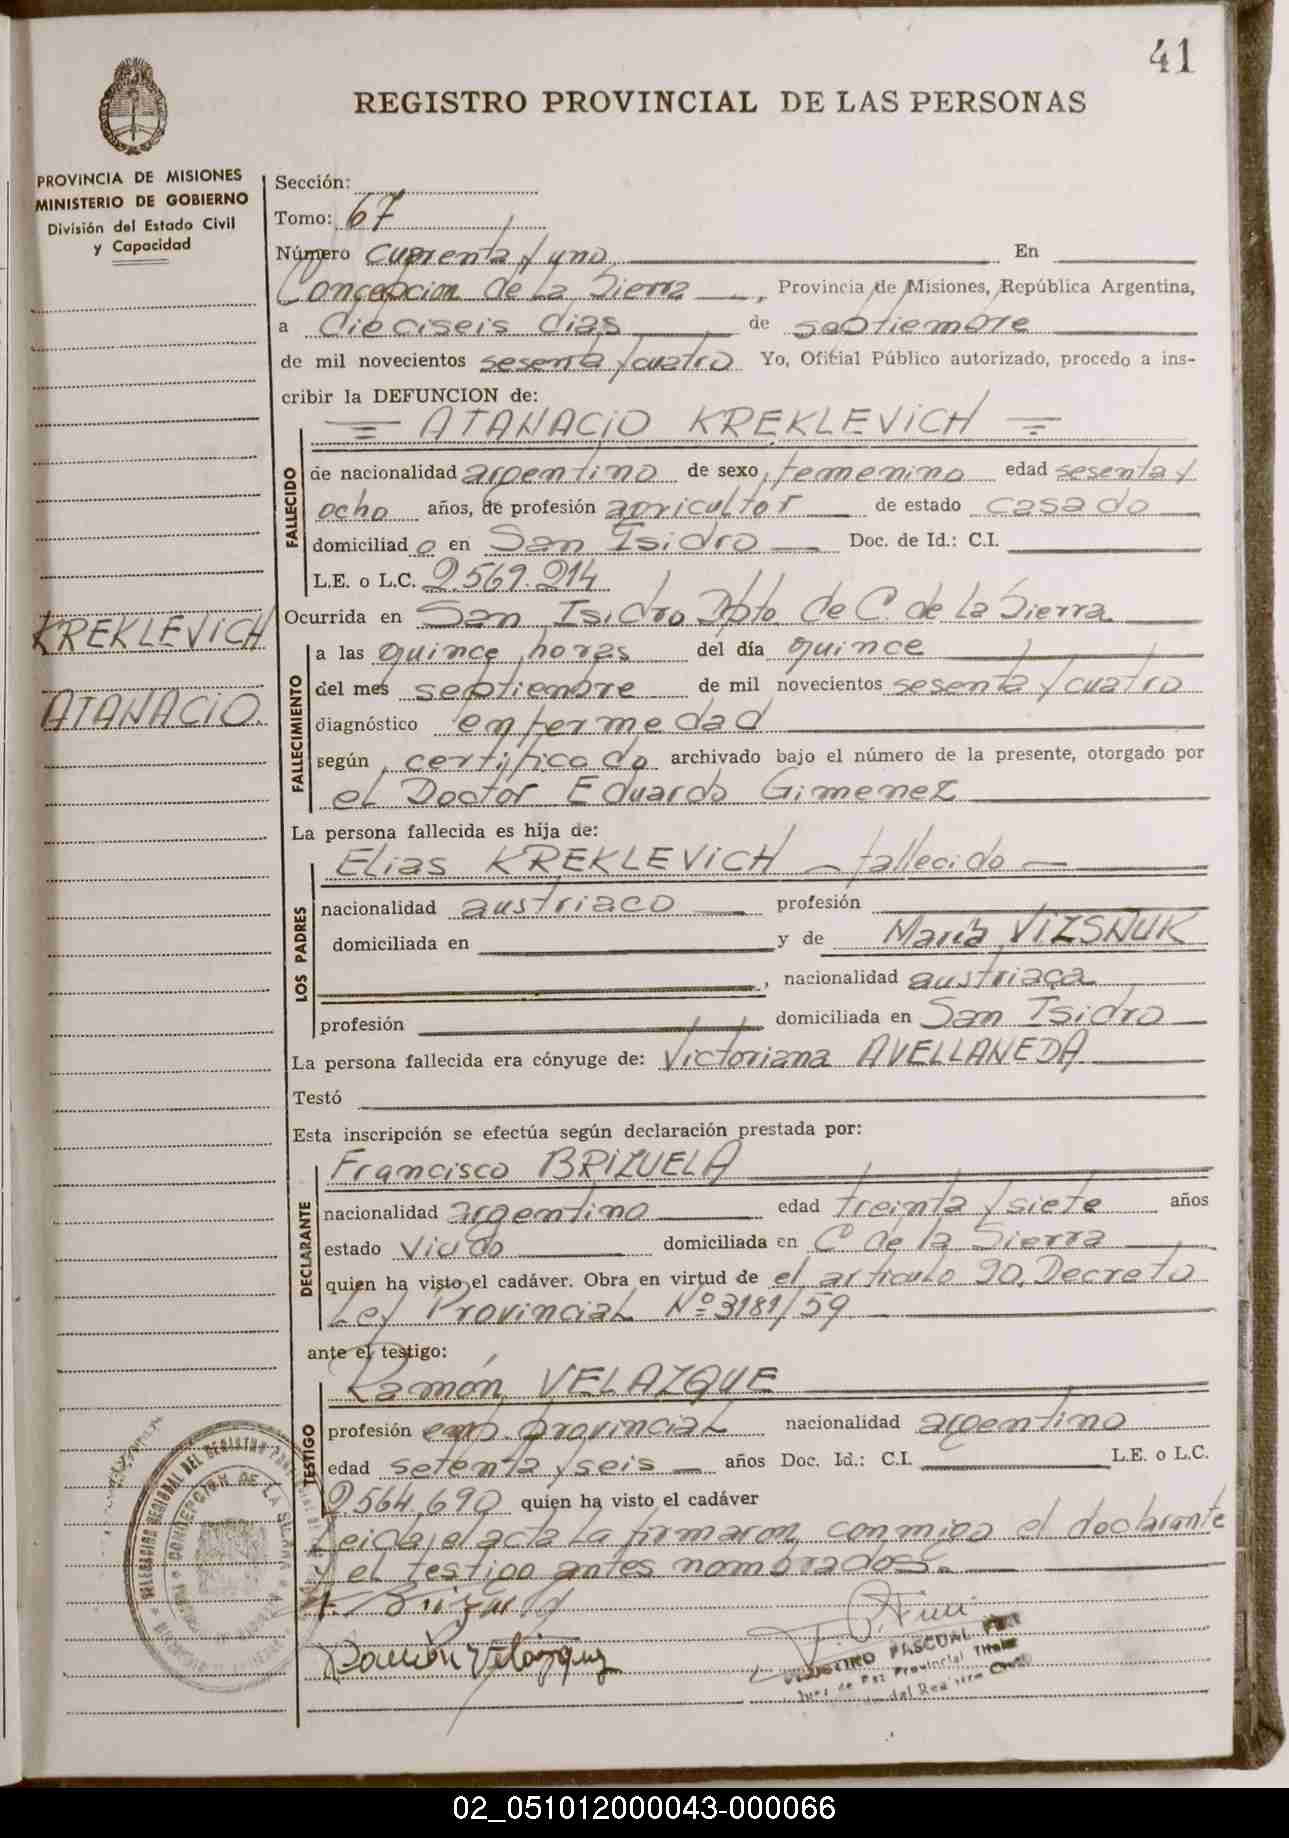 41
REGISTRO PROVINCIAL DE LAS PERSONAS
PROVINCIA DE MISIONES
MINISTERIO DE GOBIERNO
División del Estado Civil
y Capacidad
Sección:
Tomo: 67
Número cuarenta y uno En
Concepcion de la Sierra, Provincia de Misiones, República Argentina,
a dieciseis dias de septiembre
de mil novecientos sesenta y cuatro Yo, Oficial Público autorizado, procedo a ins-
cribir la DEFUNCION de:
= ATANACIO KREKLEVICH =
FALLECIDO
de nacionalidad argentino de sexo femenino edad sesenta y
ocho años, de profesión agricultor de estado casado
domiciliado en San Isidro Doc. de Id.: C.I.
L.E. o L.C. 2.569.214
Ocurrida en San Isidro Dpto. de C. de La Sierra
KREKLEVICH
ATANACIO.
FALLECIMIENTO
a las quince horas del día quince
del mes septiembre de mil novecientos sesenta y cuatro
diagnóstico enfermedad
según certificado archivado bajo el número de la presente, otorgado por
el Doctor Eduardo Gimenez
La persona fallecida es hija de:
LOS PADRES
Elias KREKLEVICH - fallecido -
nacionalidad austriaco profesión
domiciliada en y de Maria VIZSNUK
, nacionalidad austriaca
profesión domiciliada en San Isidro
La persona fallecida era cónyuge de: Victoriana AVELLANEDA
Testó
Esta inscripción se efectúa según declaración prestada por:
DECLARANTE
Francisco BRIZUELA
nacionalidad argentino edad treinta y siete años
estado Viudo domiciliada en C de la Sierra
quien ha visto el cadáver. Obra en virtud de el articulo 90, Decreto
Ley Provincial Nº 3181/59
ante el testigo:
TESTIGO
Ramón VELAZQUE
profesión emp. provincial nacionalidad argentino
edad setenta y seis años Doc. Id.: C.I. L.E. o L.C.
2.564.690 quien ha visto el cadáver
Leida el acta La firmaron conmigo el declarante
y el testigo antes nombrados.
DELEGACION REGIONAL DEL REGISTRO
CONCEPCION DE LA SIERRA
Ramón Velázquez
PASCUAL
Juez de Paz Provincial Titular
del Registro Civil
02_051012000043-000066